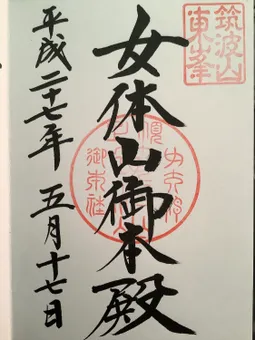 筑波山
東峯
女体山御本殿
平成二十七年 五月十七日